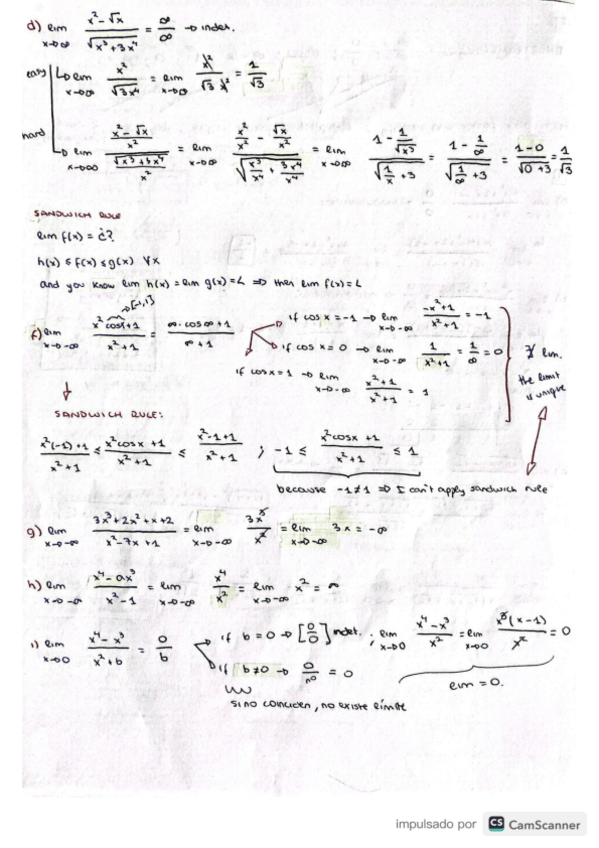 d) lim x→∞ (x² - √x)/√(x³+3x⁴) = ∞/∞ → indet.
easy → lim x→∞ x²/√(3x⁴) = lim x→∞ x²/(√3 x²) = 1/√3
hard → lim x→∞ ((x² - √x)/x²)/(√(x³+3x⁴)/x²) = lim x→∞ (x²/x² - √x/x²)/√(x³/x⁴ + 3x⁴/x⁴) = lim x→∞ (1 - 1/√x³)/√(1/x + 3) = (1 - 1/∞)/√(1/∞ + 3) = (1-0)/√(0+3) = 1/√3
SANDWICH RULE
lim f(x) = ¿?
h(x) ≤ f(x) ≤ g(x) ∀x
and you know lim h(x) = lim g(x) = L ⇒ then lim f(x) = L
→[-1,1]
f) lim x→-∞ (x² cosx+1)/(x²+1) = (∞·cos∞+1)/(∞+1)
if cos x = -1 → lim x→-∞ (-x²+1)/(x²+1) = -1
if cos x = 0 → lim x→-∞ 1/(x²+1) = 1/∞ = 0
if cos x = 1 → lim x→-∞ (x²+1)/(x²+1) = 1
∄ lim.
the limit is unique
SANDWICH RULE:
(x²(-1)+1)/(x²+1) ≤ (x²cosx+1)/(x²+1) ≤ (x²·1+1)/(x²+1) ; -1 ≤ (x²cosx+1)/(x²+1) ≤ 1
because -1≠1 ⇒ I can't apply sandwich rule
g) lim x→-∞ (3x³+2x²+x+2)/(x²-7x+1) = lim x→-∞ 3x³/x² = lim x→-∞ 3x = -∞
h) lim x→-∞ (x⁴-ax³)/(x²-1) = lim x→-∞ x⁴/x² = lim x→-∞ x² = ∞
i) lim x→0 (x⁴-x³)/(x²+b) = 0/b
if b=0 → [0/0] indet. ; lim x→0 (x⁴-x³)/x² = lim x→0 x³(x-1)/x² = 0
if b≠0 → 0/nº = 0
lim = 0.
si no coinciden, no existe límite
impulsado por CS CamScanner